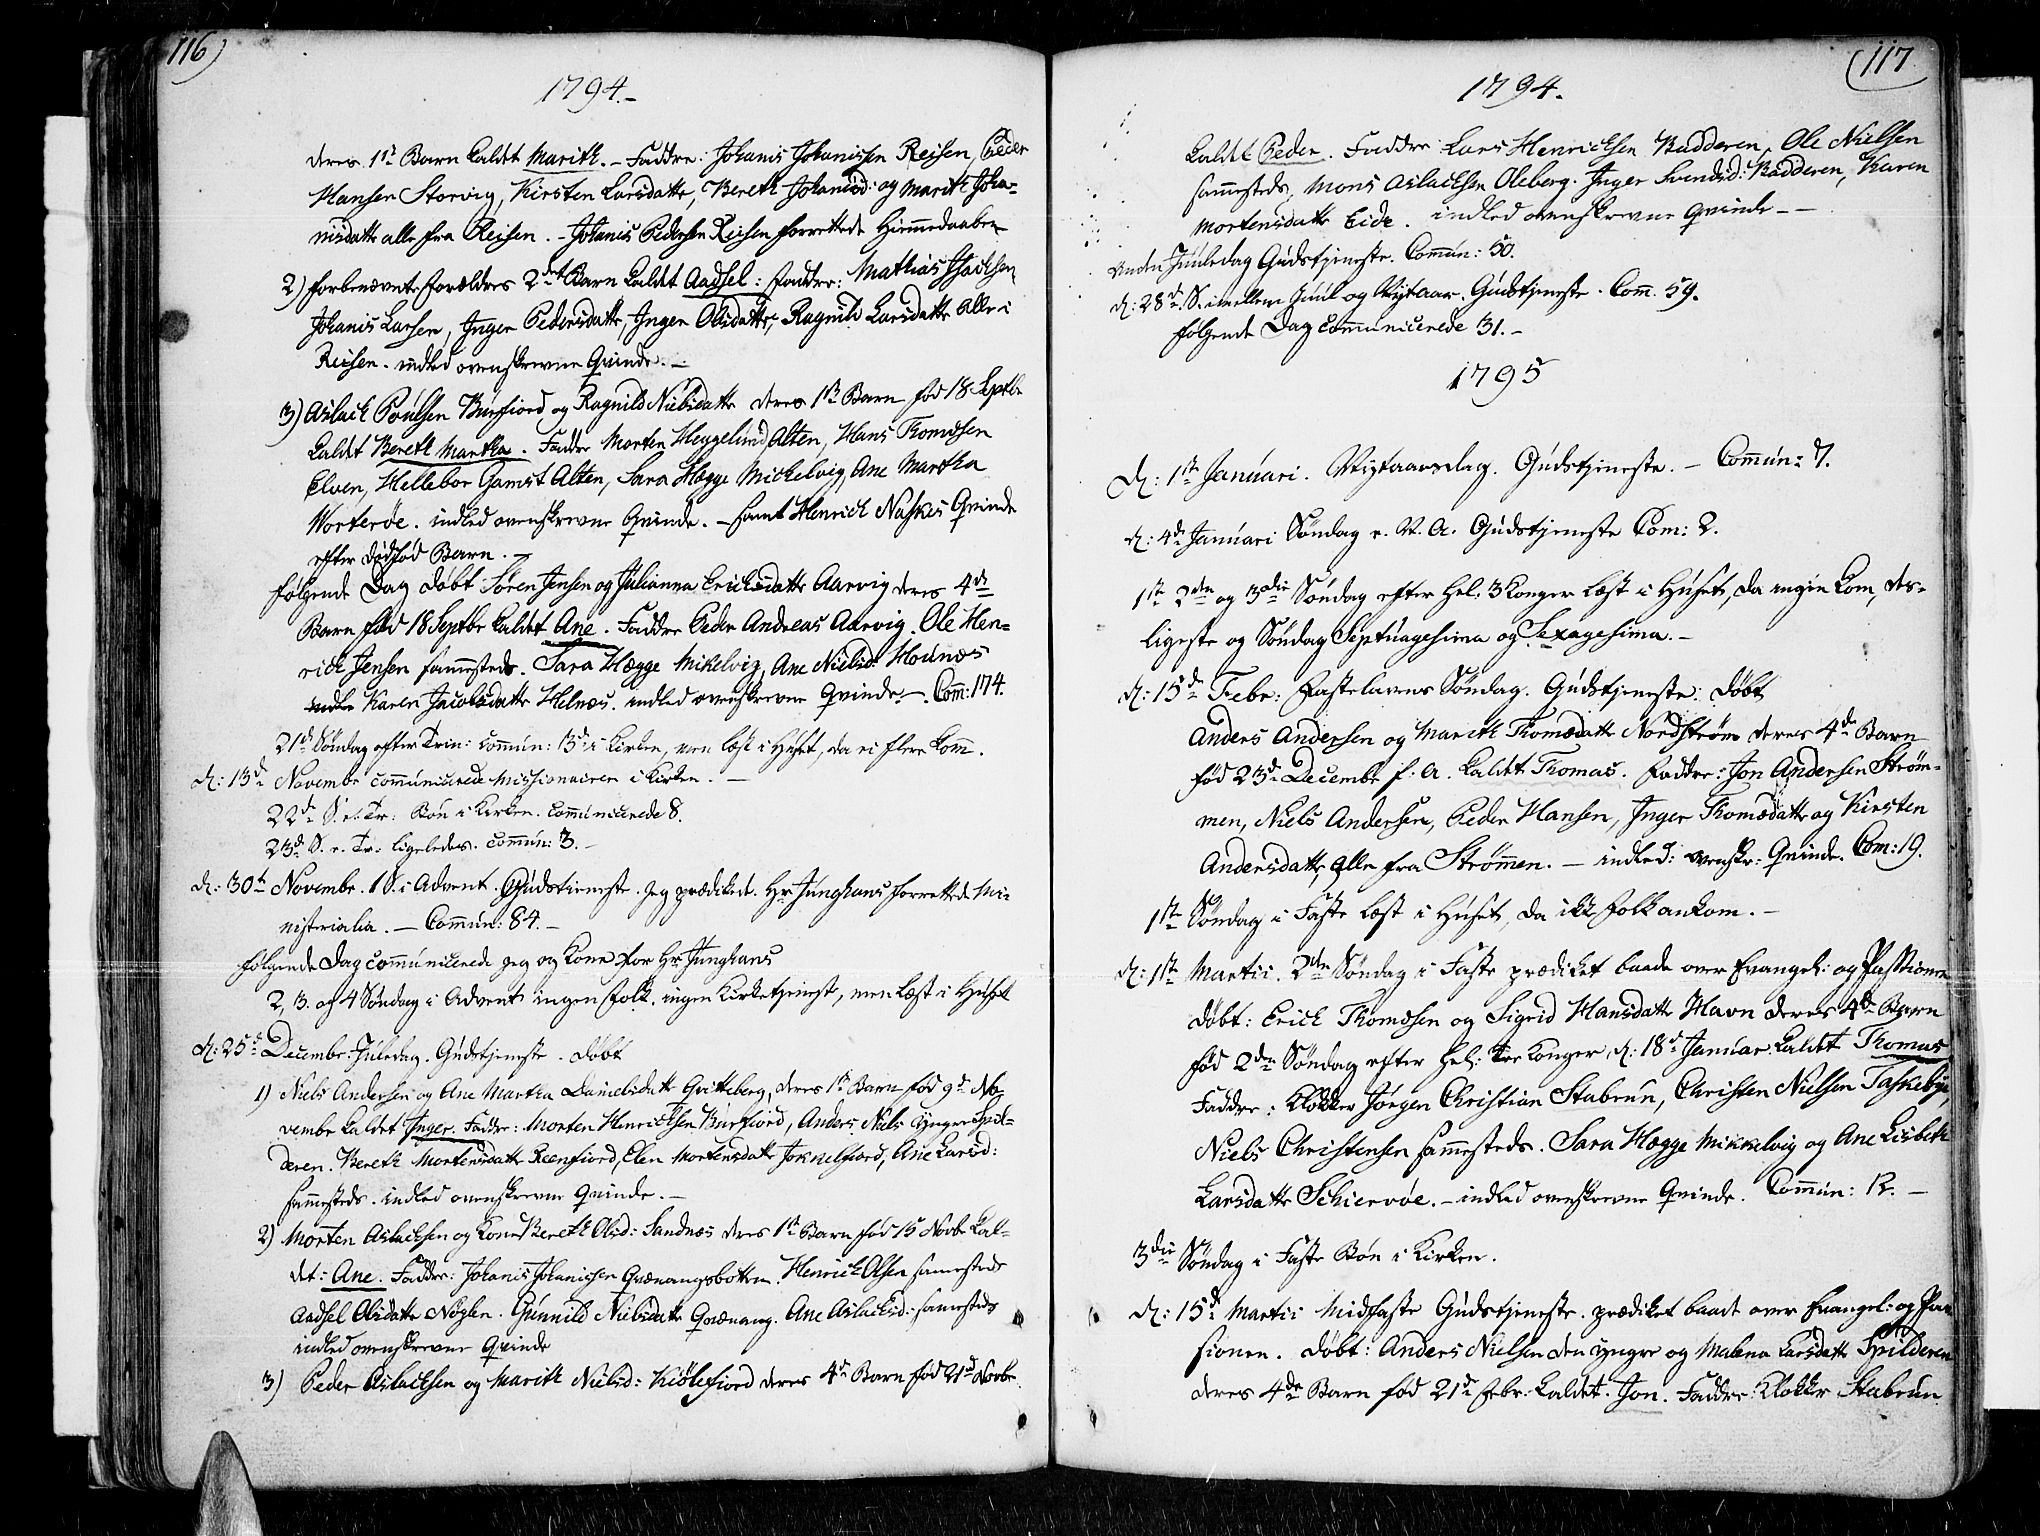 116)
1794.-
deres 1te Barn kaldet Marith. - Faddre: Johanis Johanissen Reisen, Peder
Hansen Storvig, Kirsten Larsdatte, Bereth Johanisd: og Marith Joha-
nisdatte alle fra Reisen. - Johanis Pedersen Reisen forrettede Hiemmedaaben
2) forbenævnte Forældres 2det Barn kaldet Aadsel: Faddre: Mathias Isachsen
Johanis Larsen, Inger Pedersdatte, Inger Olsdatte, Ragnild Larsdatte Alle i
Reisen. indled ovenskrevne Qvinde. -
3) Aslach Poulsen Burfiord og Ragnild Nielsdatte deres 1te Barn fød 18 Septbr
kaldet Bereth Martha. Faddre Morten Heggelund Alten, Hans Thomesen
Elven, Hellebor Gamst Alten, Sara Hegge Mickelvig, Ane Martha
Vorterøe. indled ovenskrevne Qvinde. - samt Henrich Naskes Qvinde
efter dødfød Barn. -
følgende Dag døbt Søren Jensen og Julianna Erichsdatte Aarvig deres 4de
Barn fød 18 Septbr kaldet Ane. Faddre Peder Andreas Aarvig. Ole Hen-
rich Jensen sammesteds. Sara Hegge Mikelvig, Ane Nielsd: Hounes
Karen Jacobsdatte Helnes. indled ovenskrevne Qvinde. - Com: 174.
21de Søndag efter Trin: Commún: 13de i Kirken, men læst i Húset, da ei flere kom.
d: 13de Novembr communicerede Missionairen i Kirken. -
22de S. e. Tr: Bøn i Kirken. Commúnicerede 8.
23de S. e. Tr: ligeledes. Commún: 3. -
d: 30te Novembr. 1 S. i Advent. Gúdstieneste. Jeg prædiket. Hr Júnghans forrettede Mi-
nisterialia. - Commún: 84. -
følgende Dag commúnicerede jeg og Kone for Hr Júnghans
2, 3. og 4 Søndag i Advent ingen folk. ingen Kirketjenest, men læst i Húset
d: 25de Decembr. Júledag. Gúdstjeneste. døbt
1) Niels Andersen og Ane Martha Danielsdatte Qvitteberg, deres 1te Barn fød 9de No-
vembr kaldet Inger. Faddre: Morten Henrichsen Búrfiord, Anders Niels Yngre Spil-
deren. Bereth Mortensdatte Reenfiord, Elen Mortensdatte Jokkelfiord, Ane Larsd:
sammesteds. indled ovenskrevne Qvinde. -
2) Morten Aslachsen og Kone Bereth Olsd: Sandnes deres 1te Barn fød 15 Novbr kal-
det: Ane. Faddre: Johanis Johanissen Qvænangsbotten. Henrich Olsen samesteds
Aadsel Olsdatte Nøglen. Gúnnild Nielsdatte Qvænang. Ane Aslachsd: samesteds
indled ovenskrevne Qvinde
3) Peder Aslachsen og Marith Nielsd: Kiølefiord deres 4de Barn fød 21de Novbr
(117
1794.
kaldet Peder. Faddre Lars Henrichsen Badderen, Ole Nielsen
sammesteds, Mons Aslachsen Oleberg. Inger Svendsd: Badderen, Karen
Mortensdatte Eide. indled ovenskrevne Qvinde - -
Anden Júuledag Gúdstjeneste. Común: 50.
d: 28de S. imellem Júúl og Nytaar. Gúdstjeneste. Com. 59.
følgende Dag communicerede 31. -
1795
d: 1ste Janúari. Nytaarsdag. Gúdstjeneste. - Commún: 7.
d: 4de Janúari Søndag e. N. A. Gúdstjeneste Com: 2.
1ste 2den og 3die Søndag efter Hel. 3 Konger læst i Húset, da ingen kom, des-
ligeste og Søndag Septúagesima og Sexagesima. -
d: 15de Febr: Fastelavens Søndag. Gúdstjeneste: døbt
Anders Andersen og Marith Thomædatte Nordstrøm deres 4de Barn
fød 23de Decembr f. A. kaldet Thomas. Faddre: Jon Andersen Strøm-
men, Niels Andersen, Peder Hansen, Inger Thomædatte og Kirsten
Andersdatte, alle fra Strømmen. - indled: ovenskr: Qvinde. Com: 19.
1ste Søndag i Faste læst i Húset, da ikke folk ankom. -
d: 1ste Martii. 2den Søndag i Faste prædiket baade over Evangel: og Passionen
døbt: Erich Thomesen og Sigrid Hansdatte Havn deres 4de Barn
fød 2den Søndag efter Hel: tre Konger, d: 18de Januar kaldet Thomas
Faddre: Klokker Jørgen Christian Stabrún, Christen Nielsen Taskebye,
Niels Christensen sammesteds. Sara Hegge Mikkelvig og Ane Lisbeth
Larsdatte Schiervøe. - indled ovenskrevne Qvinde. Commún: 12. -
3die Søndag i Faste Bøn i Kirken.
d: 15de Martii Midfaste Gúdstjeneste. prædiket baade over Evangel: og Pas-
sionen. døbt: Anders Nielsen den yngre og Malena Larsdatte Spilderen
deres 4de Barn fød 21de Febr: kaldet. Jon. Faddre: Klokker Stabrún